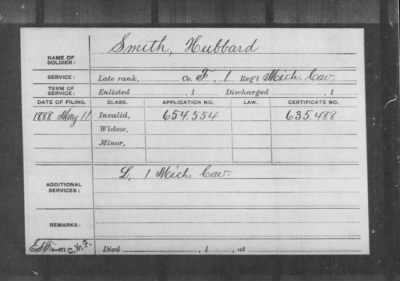 Smith, Hubbard
NAME OF SOLDIER:
SERVICE: Late rank, Co. F, 1 Reg't Mich. Cav.
TERM OF SERVICE: Enlisted , 1 Discharged , 1
DATE OF FILING. CLASS. APPLICATION NO. LAW. CERTIFICATE NO.
1888 May 11 Invalid, 654.554 635.488
Widow,
Minor,
L, 1 Mich. Cav.
ADDITIONAL SERVICES:
REMARKS:
Died , 1 , at